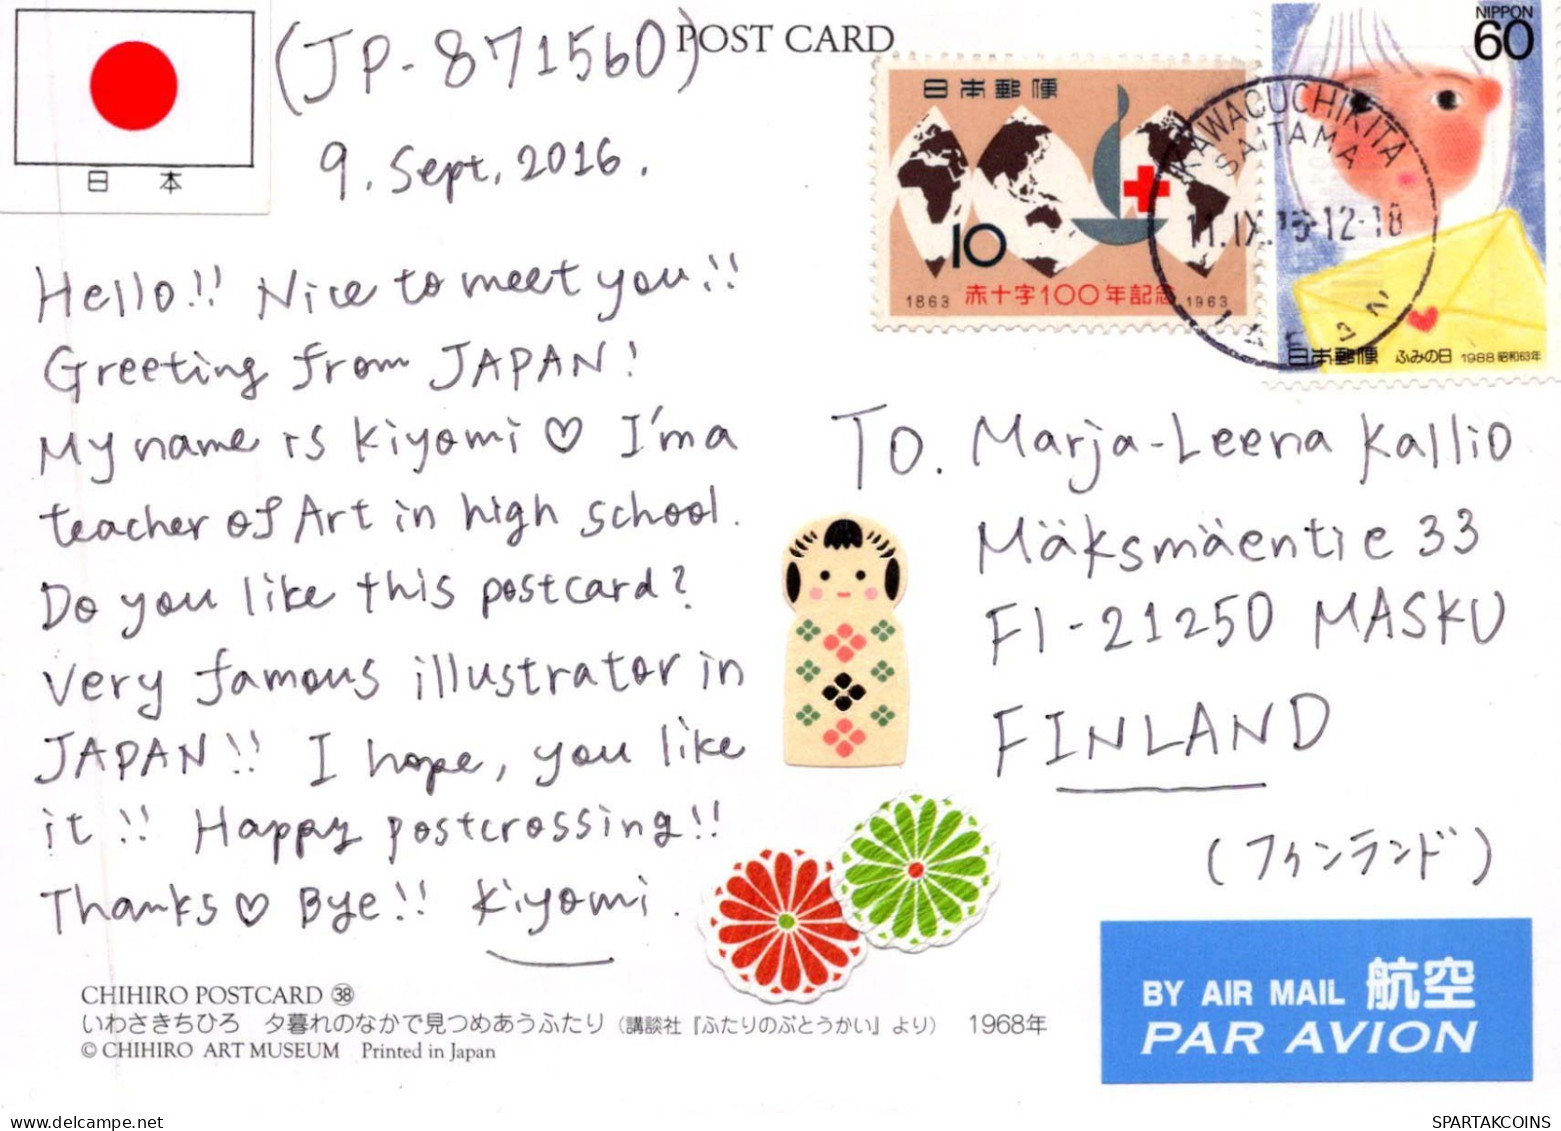 (JP-871560)
POST CARD
9. Sept. 2016.
日本
日本郵便
10
1863 赤十字100年記念 1963
NIPPON
60
日本郵便 ふみの日 1988 昭和63年
KAWAGUCHIKITA
SAITAMA
11.IX.16-12-18
JAPAN
Hello!! Nice to meet you!!
Greeting from JAPAN!
My name is Kiyomi ♡ I'm a
teacher of Art in high school.
Do you like this postcard?
Very famous illustrator in
JAPAN!! I hope, you like
it!! Happy postcrossing!!
Thanks ♡ Bye!! Kiyomi.
To. Marja-Leena Kallio
Mäksmäentie 33
FI-21250 MASKU
FINLAND
(フィンランド)
CHIHIRO POSTCARD ㊳
いわさきちひろ 夕暮れのなかで見つめあうふたり (講談社『ふたりのぶとうかい』より) 1968年
© CHIHIRO ART MUSEUM Printed in Japan
BY AIR MAIL 航空
PAR AVION
SPARTAKCOINS